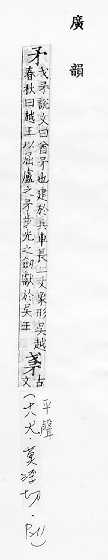 廣韻
矛
戈矛說文曰酋矛也建於兵車長二丈象形吳越
春秋曰越王以屈盧之矛步光之劒獻於吳王
古
文
平聲
(十八尤.莫浮切.